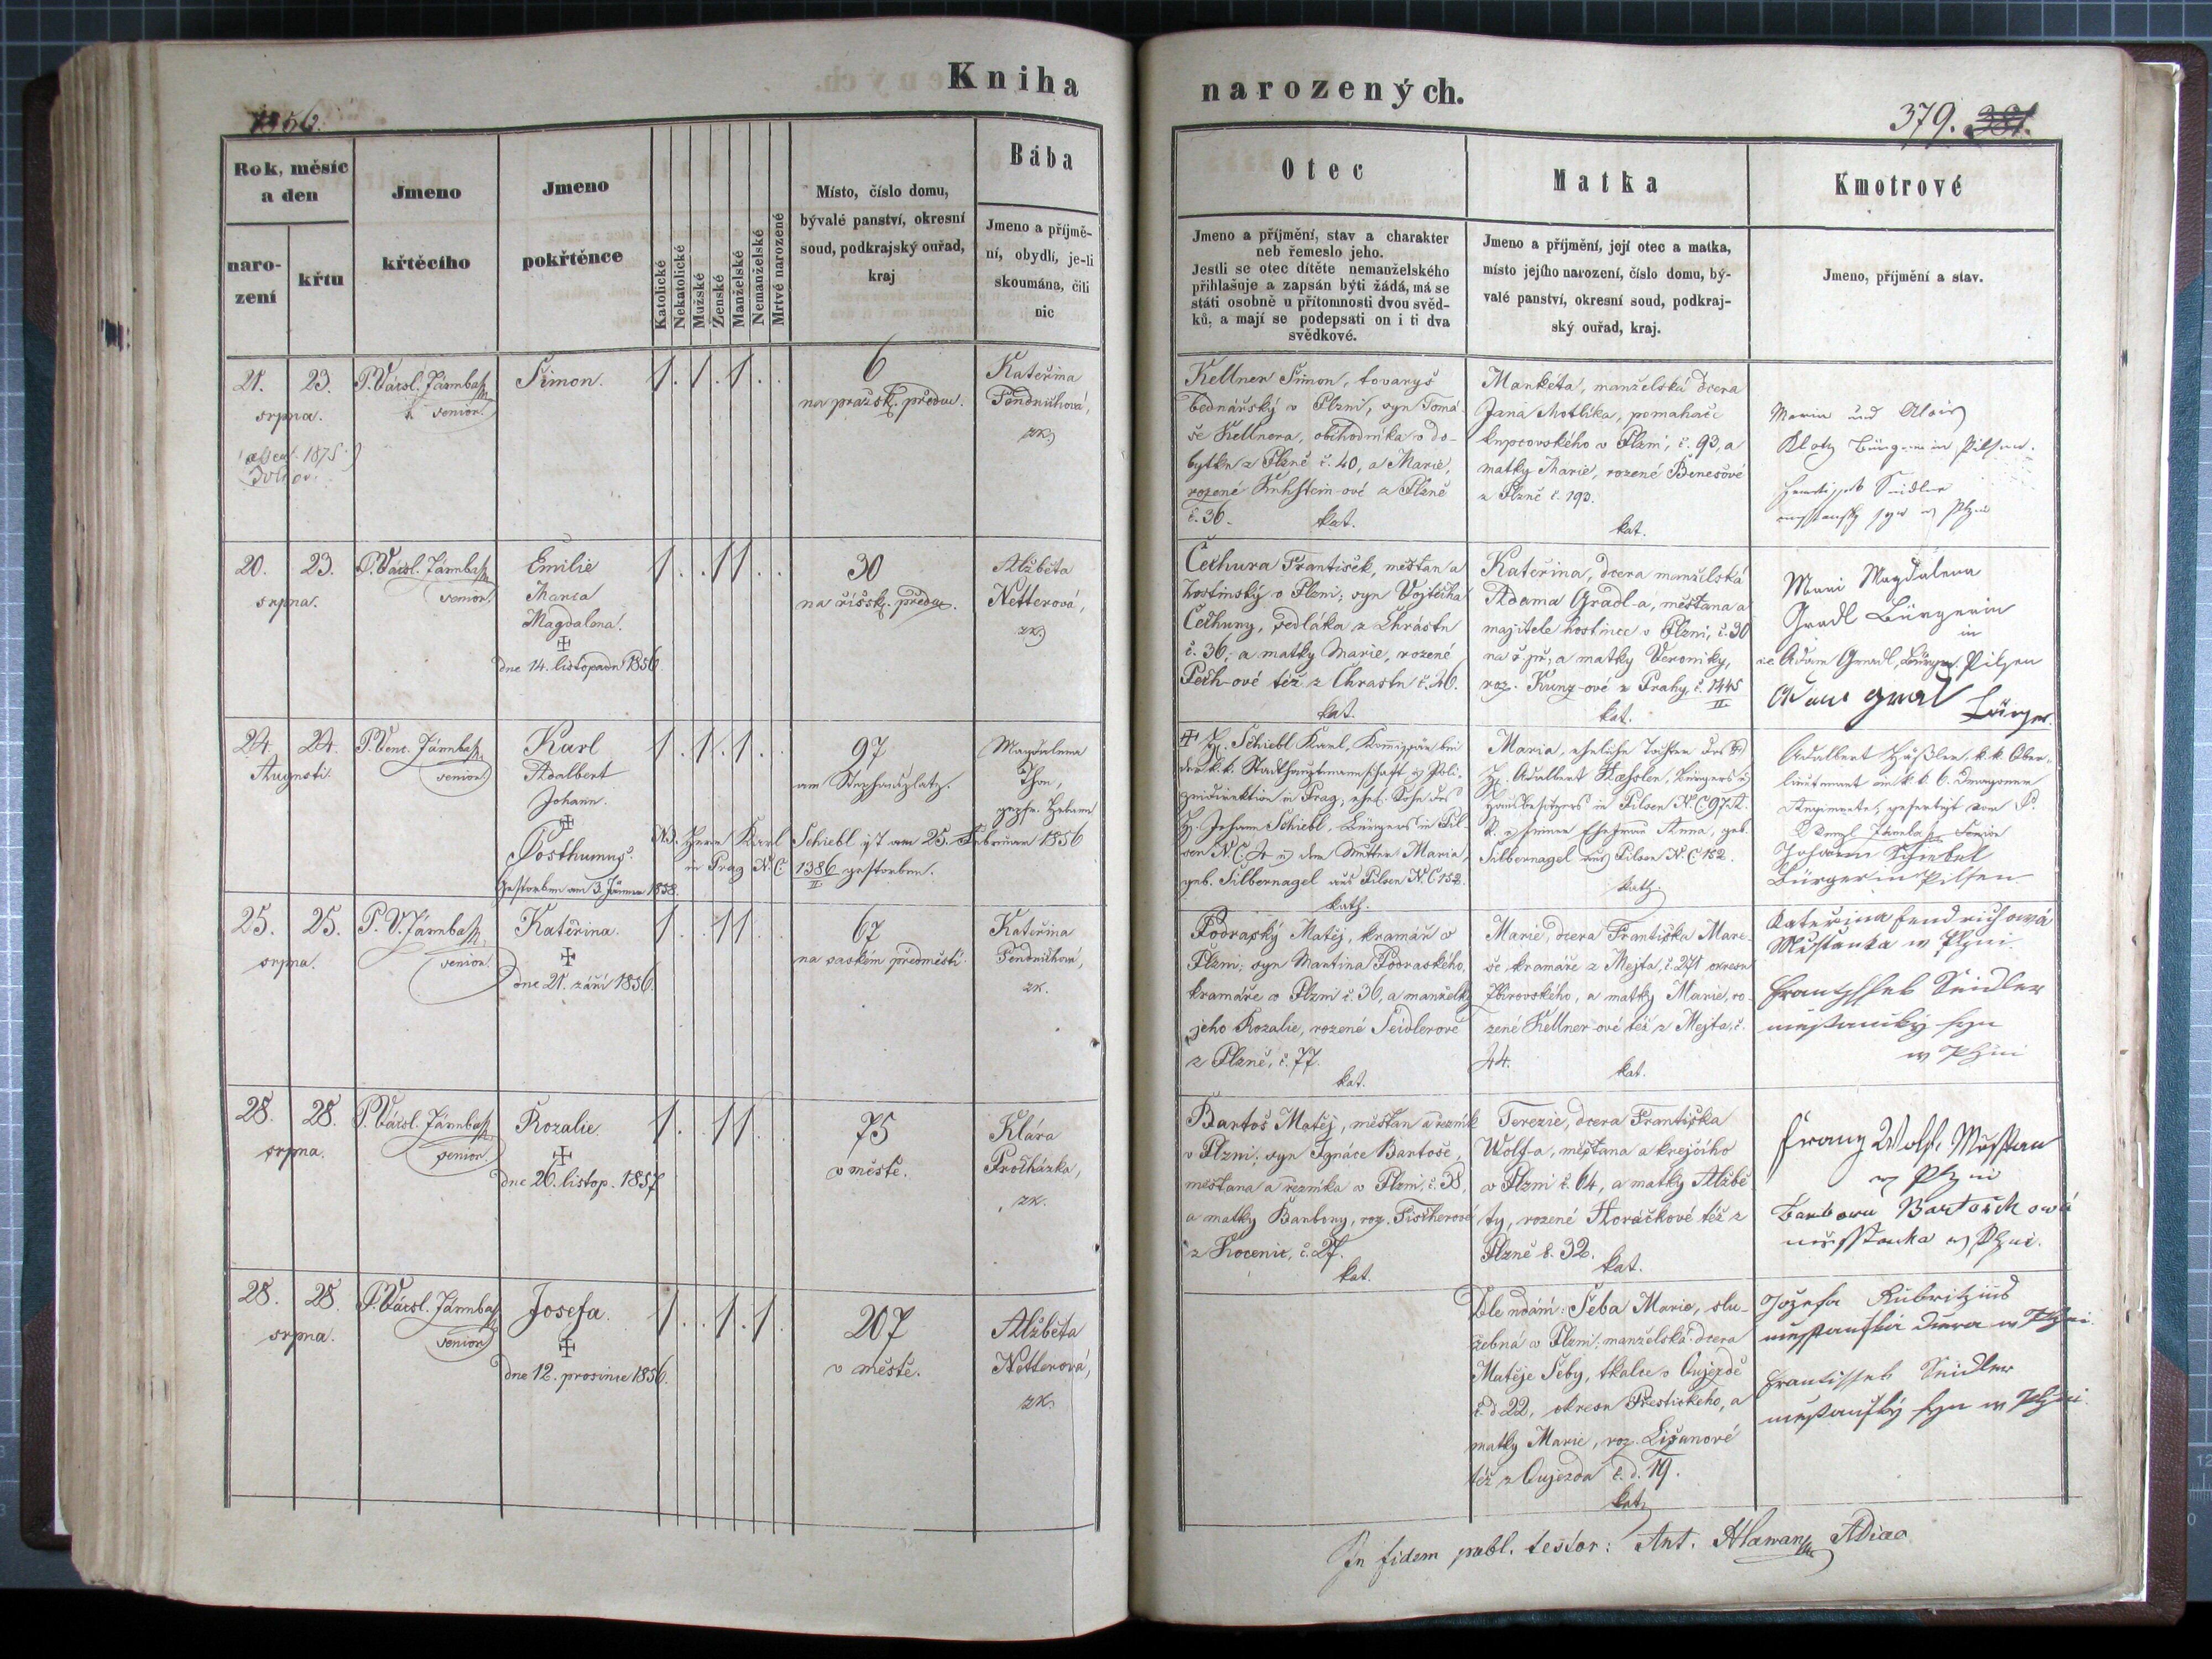 Kniha
narozených.
1856.
379. 381.
Rok, měsíc
a den
naro-
zení
křtu
Jmeno
křtěcího
Jmeno
pokřtěnce
Katolické
Nekatolické
Mužské
Ženské
Manželské
Nemanželské
Mrtvě narozené
Místo, číslo domu,
bývalé panství, okresní
soud, podkrajský ouřad,
kraj
Bába
Jmeno a příjmě-
ní, obydlí, je-li
skoumána, čili
nic
Otec
Jmeno a příjmění, stav a charakter
neb řemeslo jeho.
Jestli se otec dítěte nemanželského
přihlašuje a zapsán býti žádá, má se
státi osobně u přítomnosti dvou svěd-
ků, a mají se podepsati on i ti dva
svědkové.
Matka
Jmeno a příjmění, její otec a matka,
místo jejího narození, číslo domu, bý-
valé panství, okresní soud, podkraj-
ský ouřad, kraj.
Kmotrové
Jmeno, příjmění a stav.
21. 23.
srpna.
1875
P. Václ. Jármba
senior.
Šimon.
1. 1. 1. .
6
na pražsk. předm.
Kateřina
Fendrichová,
zk.
Kellner Šimon, tovaryš
bednářský v Plzni, syn Tomá-
še Kellnera, obchodníka v do-
bytku z Plzně č. 40, a Marie,
rozené Kuhstein-ové z Plzně
č. 36. kat.
Markéta, manželská dcera
Jana Motlíka, pomahače
kupcovského v Plzni, č. 93, a
matky Marie, rozené Benešové
z Plzně č. 193.
kat.
Maria und Alois
Klotz Bürger in Pilsen.
Seidler
20. 23.
srpna.
P. Václ. Jármba
senior
Emilie
Maria
Magdalena.
dne 14. listopadu 1856
1. . 11 . .
30
na říšsk. předm.
Alžběta
Netterová,
zk.
Čechura František, měštan a
hostinský v Plzni, syn Vojtěcha
Čechury, sedláka z Chrástu
č. 36, a matky Marie, rozené
Pech-ové též z Chrastu č. 26.
kat.
Kateřina, dcera manželská
Adama Gradl-a, měštana a
majitele hostince v Plzni, č. 30
na ř. př., a matky Veroniky,
roz. Kunz-ové z Prahy č. 1445
II
kat.
Mari Magdalena
Gradl Bürgerin
in
Adam Gradl, Bürger. Pilsen
Adam Gradl
Bürger.
24. 24.
Augusti.
P. Venc. Jármba
senior
Karl
Adalbert
Johann.
Posthumus.
Gestorben am 3. Jänner 1858.
1. 1. 1. .
97
am Stephansplatz.
Magdalena
Thon,
geprfte. Hebamme
NB. Herr Karl Schiebl ist am 25. Februar 1856
in Prag N.C. 1386 gestorben.
II
H. Schiebl Karl, Kommissär bei
der k.k. Stadthauptmannschaft u. Poli-
zeidirektion in Prag, ehel. Sohn des
H. Johann Schiebl, Bürgers in Pil-
sen N.C. 4 u. der Mutter Maria,
geb. Silbernagel aus Pilsen N.C. 152.
kath.
Maria, eheliche Tochter des
H. Adalbert Hæssler, Bürgers u.
Hausbesitzers in Pilsen N.C. 97
seiner Ehefrau Anna, geb.
Silbernagel aus Pilsen N.C. 152.
kath.
Adalbert Häßler, k.k. Ober-
lieutenant im k.k. 6. Dragoner
Regimente, gefertigt vom P.
Wenzl Jármba Senior
Johann Schiebel
Bürger in Pilsen
25. 25.
srpna.
P. V. Jármba
senior.
Kateřina.
dne 21. září 1856.
1. . 11. .
67
na saském předměstí.
Kateřina
Fendrichová,
zk.
Podraský Matěj, kramář v
Plzni; syn Martina Podraského,
kramáře v Plzni č. 36, a manželky
jeho Rozalie, rozené Seidlerové
z Plzně, č. 77.
kat.
Marie, dcera Františka Mare-
še kramáře z Mejta, č. 271 okresu
Zbirovského, a matky Marie, ro-
zené Kellner-ové též z Mejta, č.
44. kat.
Kateřina Fendrichowá
Měsstanka w Plzni.
Frantissek Seidler
měsstanský syn
w Plzni
28. 28.
srpna.
P. Václ. Jármba
senior.
Rozalie.
dne 26. listop. 1857
1. . 11 . .
75
v městě.
Klára
Procházka,
zk.
Bartoš Matěj, měštan a řezník
v Plzni; syn Ignáce Bartoše,
měštana a řezníka v Plzni, č. 58,
a matky Barbory, roz. Fischerové
z Kocenic, č. 27.
kat.
Terezie, dcera Františka
Wolf-a, měštana a krejčího
v Plzni č. 64, a matky Alžbě-
ty, rozené Horáčkové též z
Plzně č. 32.
kat.
Franz Wolf, Měsstan
w Plzni
Barbora Bartoschowá
měsstanka w Plzni.
28. 28.
srpna.
P. Václ. Jármba
senior
Josefa.
dne 12. prosince 1856.
1. . 1. 1.
207
v městě.
Alžběta
Netterová,
zk.
Dle udání: Šeba Marie, slu-
žebná v Plzni; manželská dcera
Matěje Šeby, tkalce v Oujezdě
č. d. 22, okresu Přestického, a
matky Marie, roz. Lišanové
též z Oujezda č. d. 19.
kat.
Jozefa Kubritzius
měsstanská dcera w Plzni.
Frantissek Seidler
měsstanský syn w Plzni.
In fidem publ. testor: Ant. Hlawan